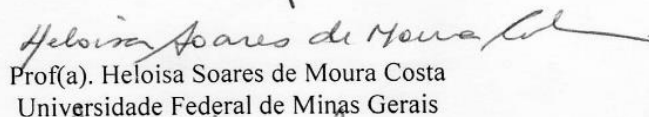 Heloisa Soares de Moura Costa
Prof(a). Heloisa Soares de Moura Costa
Universidade Federal de Minas Gerais